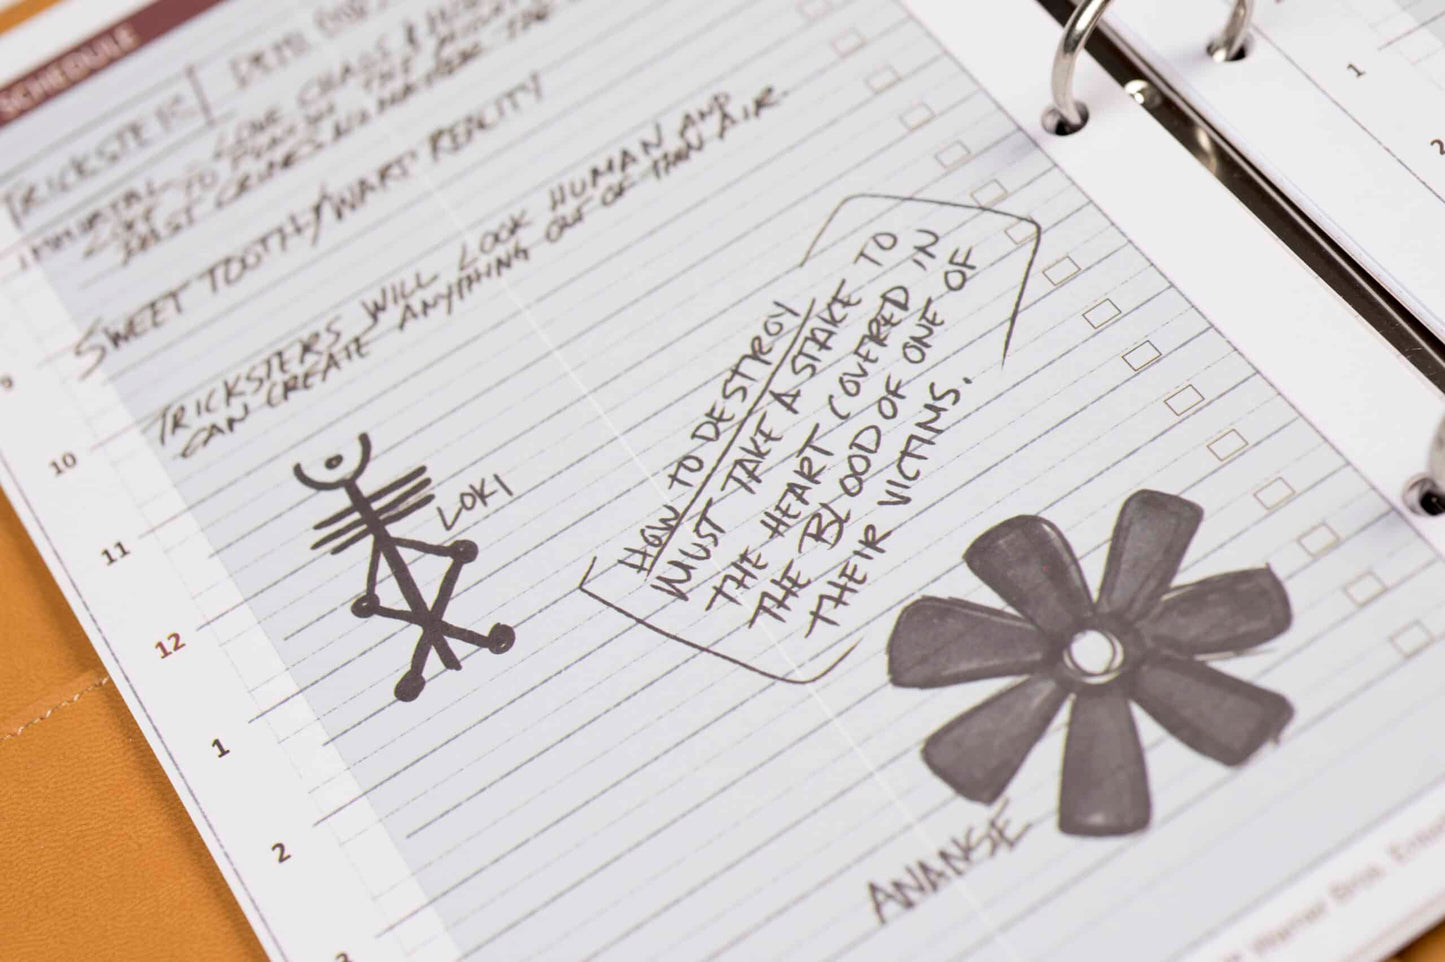 SCHEDULE
TRICKSTER
IMMORTAL - LOVE CHAOS &
PAST CRIMES NO MATTER THE
SWEET TOOTH/WARP REALITY
TRICKSTERS WILL LOOK HUMAN AND
CAN CREATE ANYTHING OUT OF THIN AIR.
LOKI
HOW TO DESTROY
MUST TAKE A STAKE TO
THE HEART COVERED IN
THE BLOOD OF ONE OF
THEIR VICTIMS.
ANANSE
9
10
11
12
1
2
3
1
2
Warner Bros.